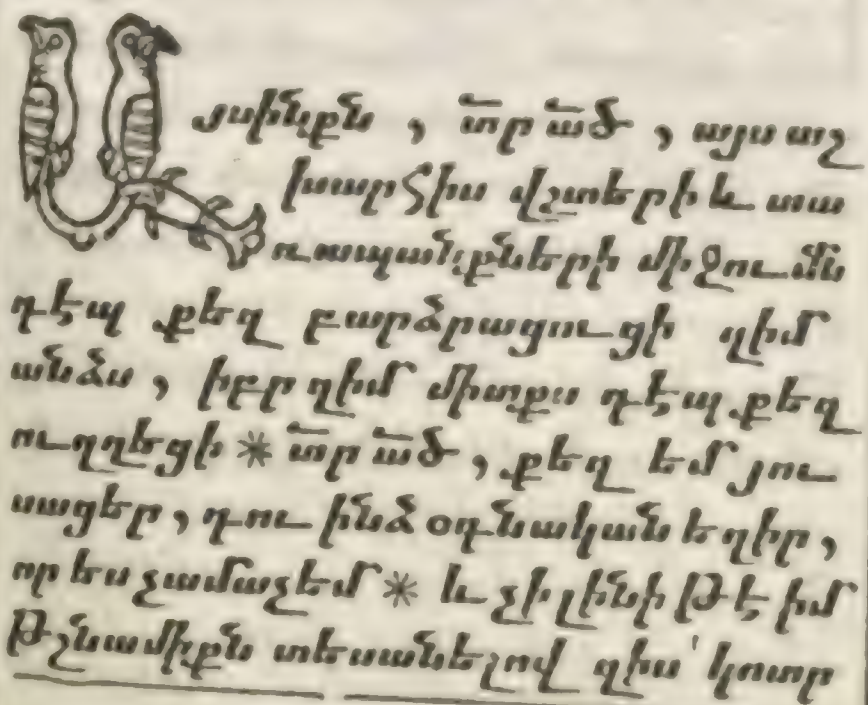 Այսինքն, տր ած, այս աշ
խարհիս վշտերի և տա
ռապանքների միջումն
դէպ քեզ բարձրացուցի զիմ
անձս, իբր զիմ միտքս դէպ քեզ
ուղղեցի * տր ած, քեզ եմ յու
սացեր, դու ինձ օգնական եղիր,
որ ես չամաչեմ * և չի լինի թէ իմ
թշնամիքն տեսանելով զիս՝ կոտր